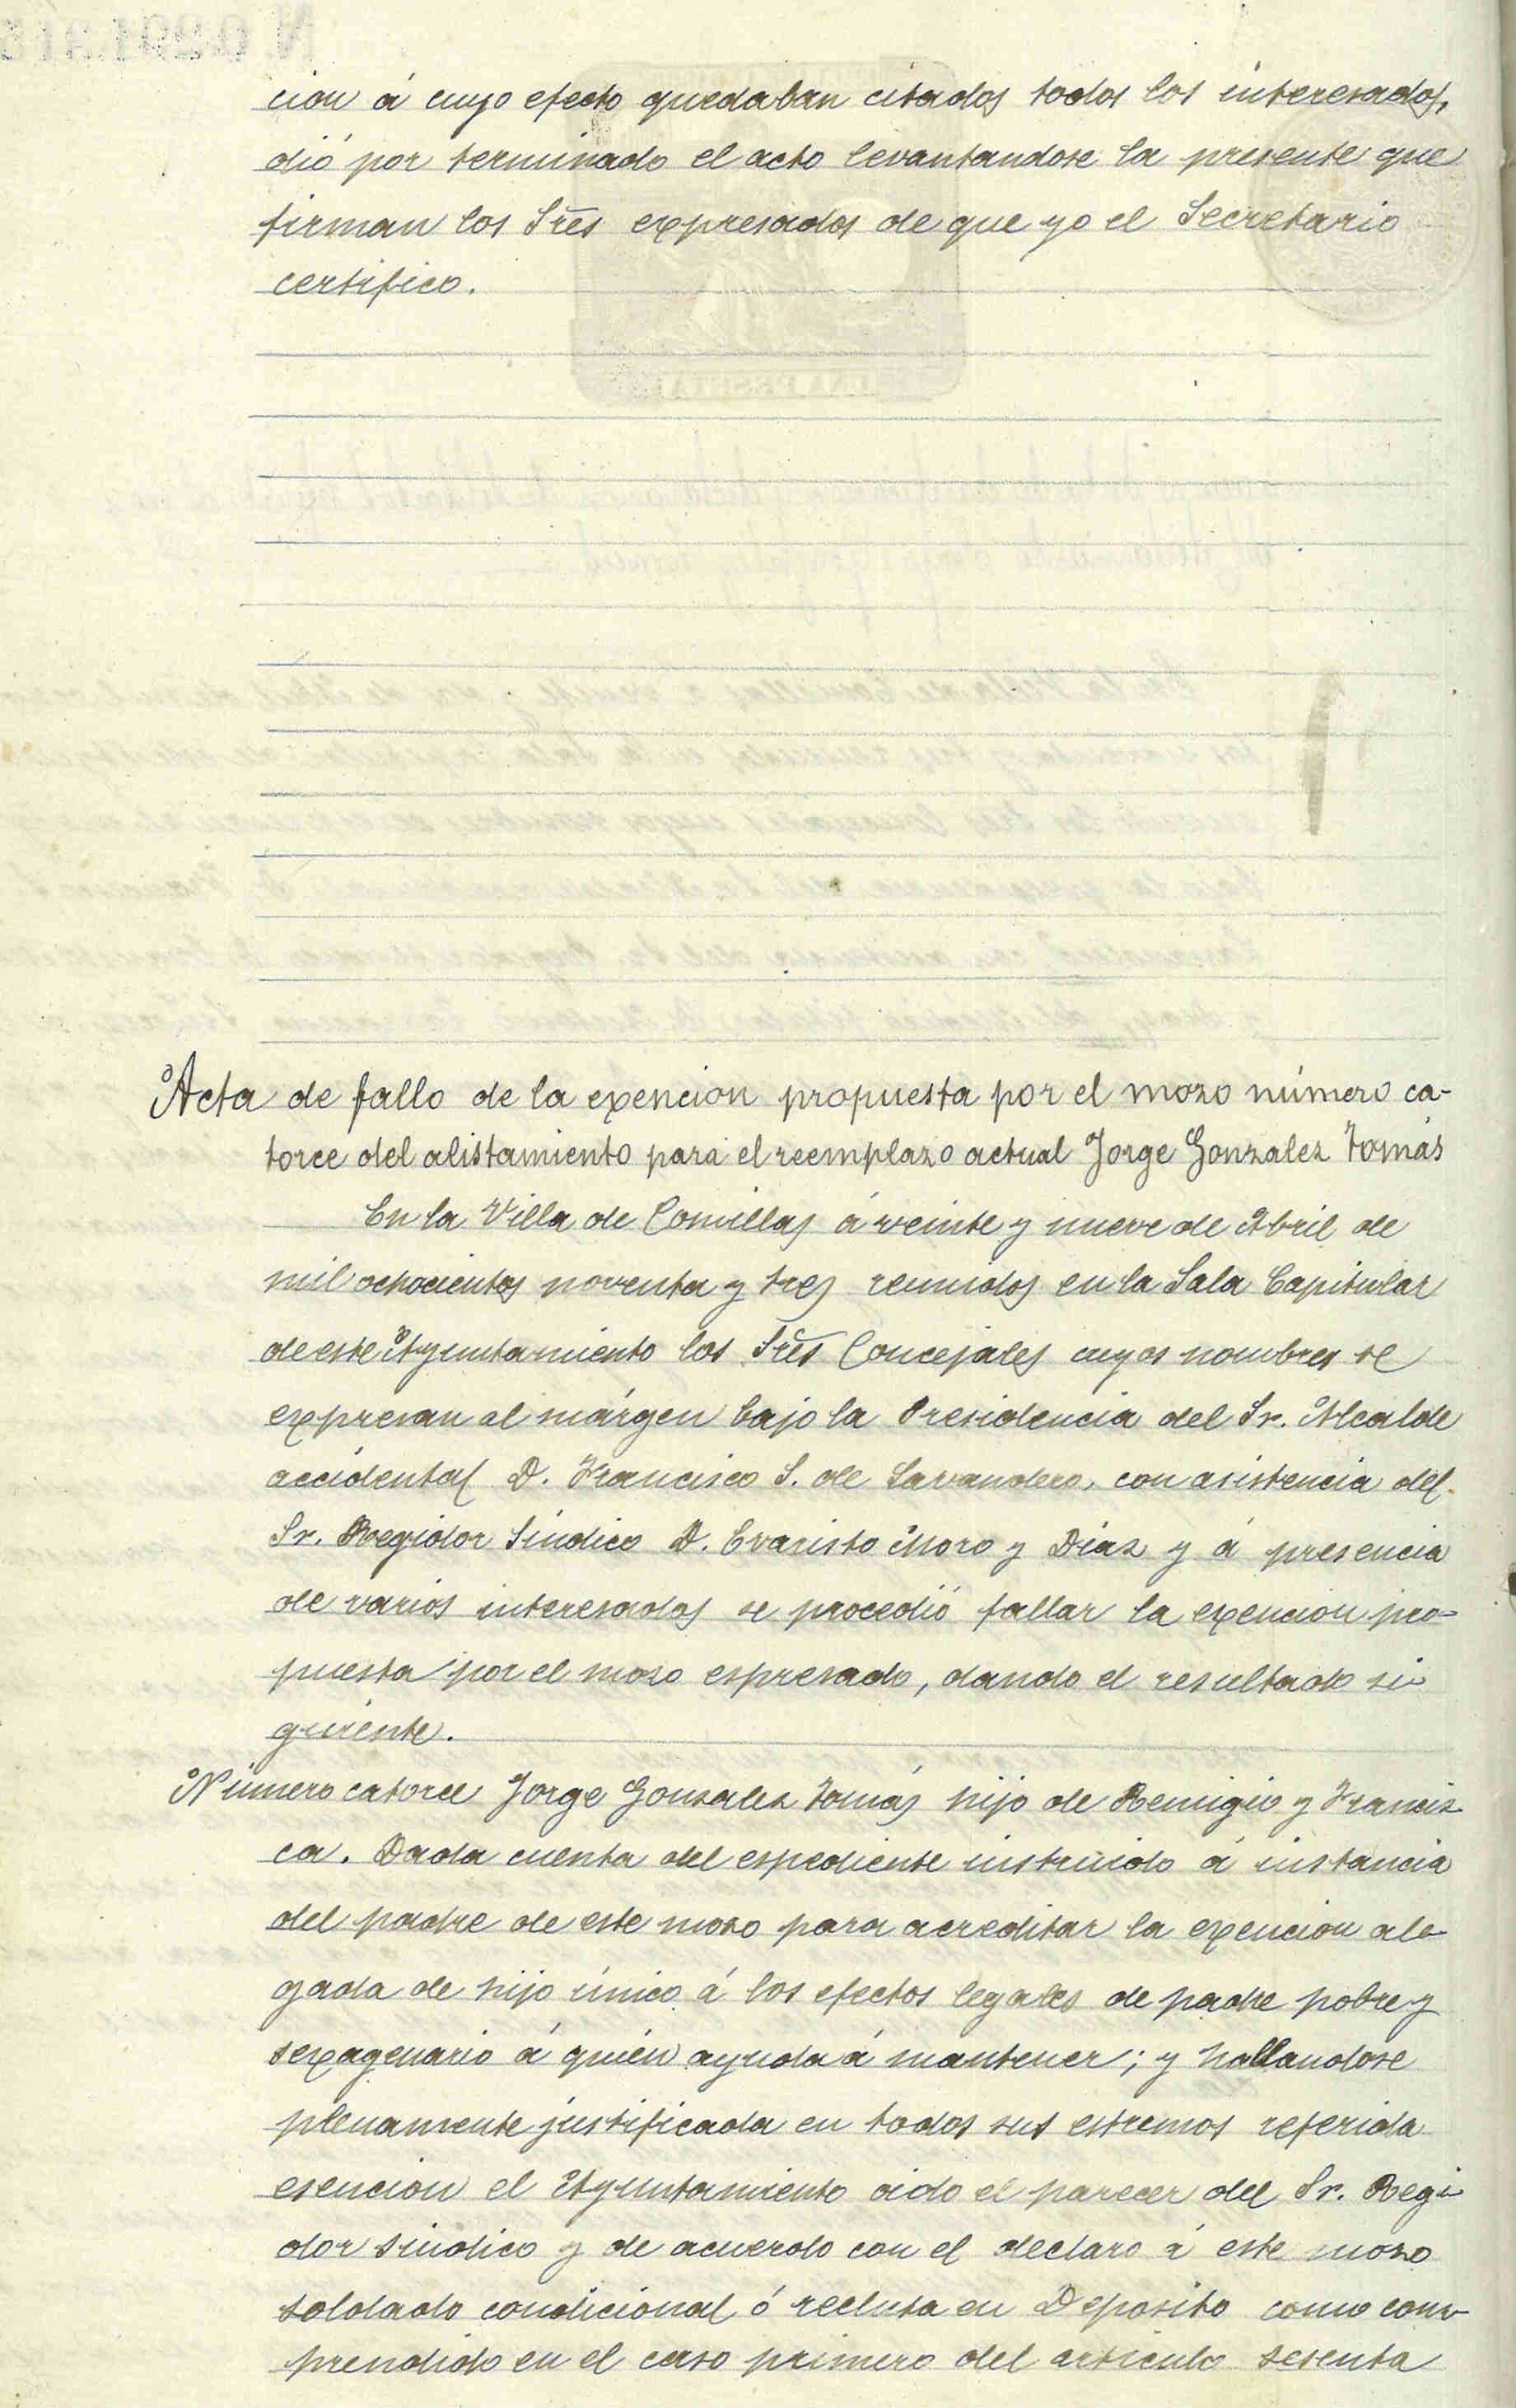 cion á cuyo efecto quedaban citados todos los interesados,
dió por terminado el acto levantandose la presente que
firman los Sres expresados de que yo el Secretario
certifico.
UNA PESETA
Acta de fallo de la exencion propuesta por el mozo número ca-
torce del alistamiento para el reemplazo actual Jorge Gonzalez Tomás
En la Villa de Comillas á veinte y nueve de Abril de
mil ochocientos noventa y tres reunidos en la Sala Capitular
de este Ayuntamiento los Sres Concejales cuyos nombres se
expresan al márgen bajo la Presidencia del Sr. Alcalde
accidental D. Francisco S. de Lavandero, con asistencia del
Sr. Regidor Síndico D. Evaristo Moro y Díaz y á presencia
de varios interesados se procedió fallar la exencion pro-
puesta por el mozo espresado, dando el resultado si-
guiente.
Número catorce Jorge Gonzalez Tomás hijo de Remigio y Francis-
ca. Dada cuenta del espediente instruido á instancia
del padre de este mozo para acreditar la exencion ale-
gada de hijo único á los efectos legales de padre pobre y
sexagenario á quién ayuda á mantener; y hallandose
plenamente justificada en todos sus estremos referida
esencion el Ayuntamiento oido el parecer del Sr. Regi-
dor Sindico y de acuerdo con el declaro á este mozo
soldado condicional ó recluta en Deposito como com-
prendido en el caso primero del artículo sesenta